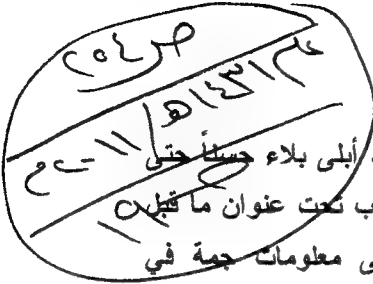 ص ٢٠٤
١٤٣١هـ / ٢٠١١م
أبلى بلاء حسناً حتى
ب تحت عنوان ما قبل
ى معلومات جمة في